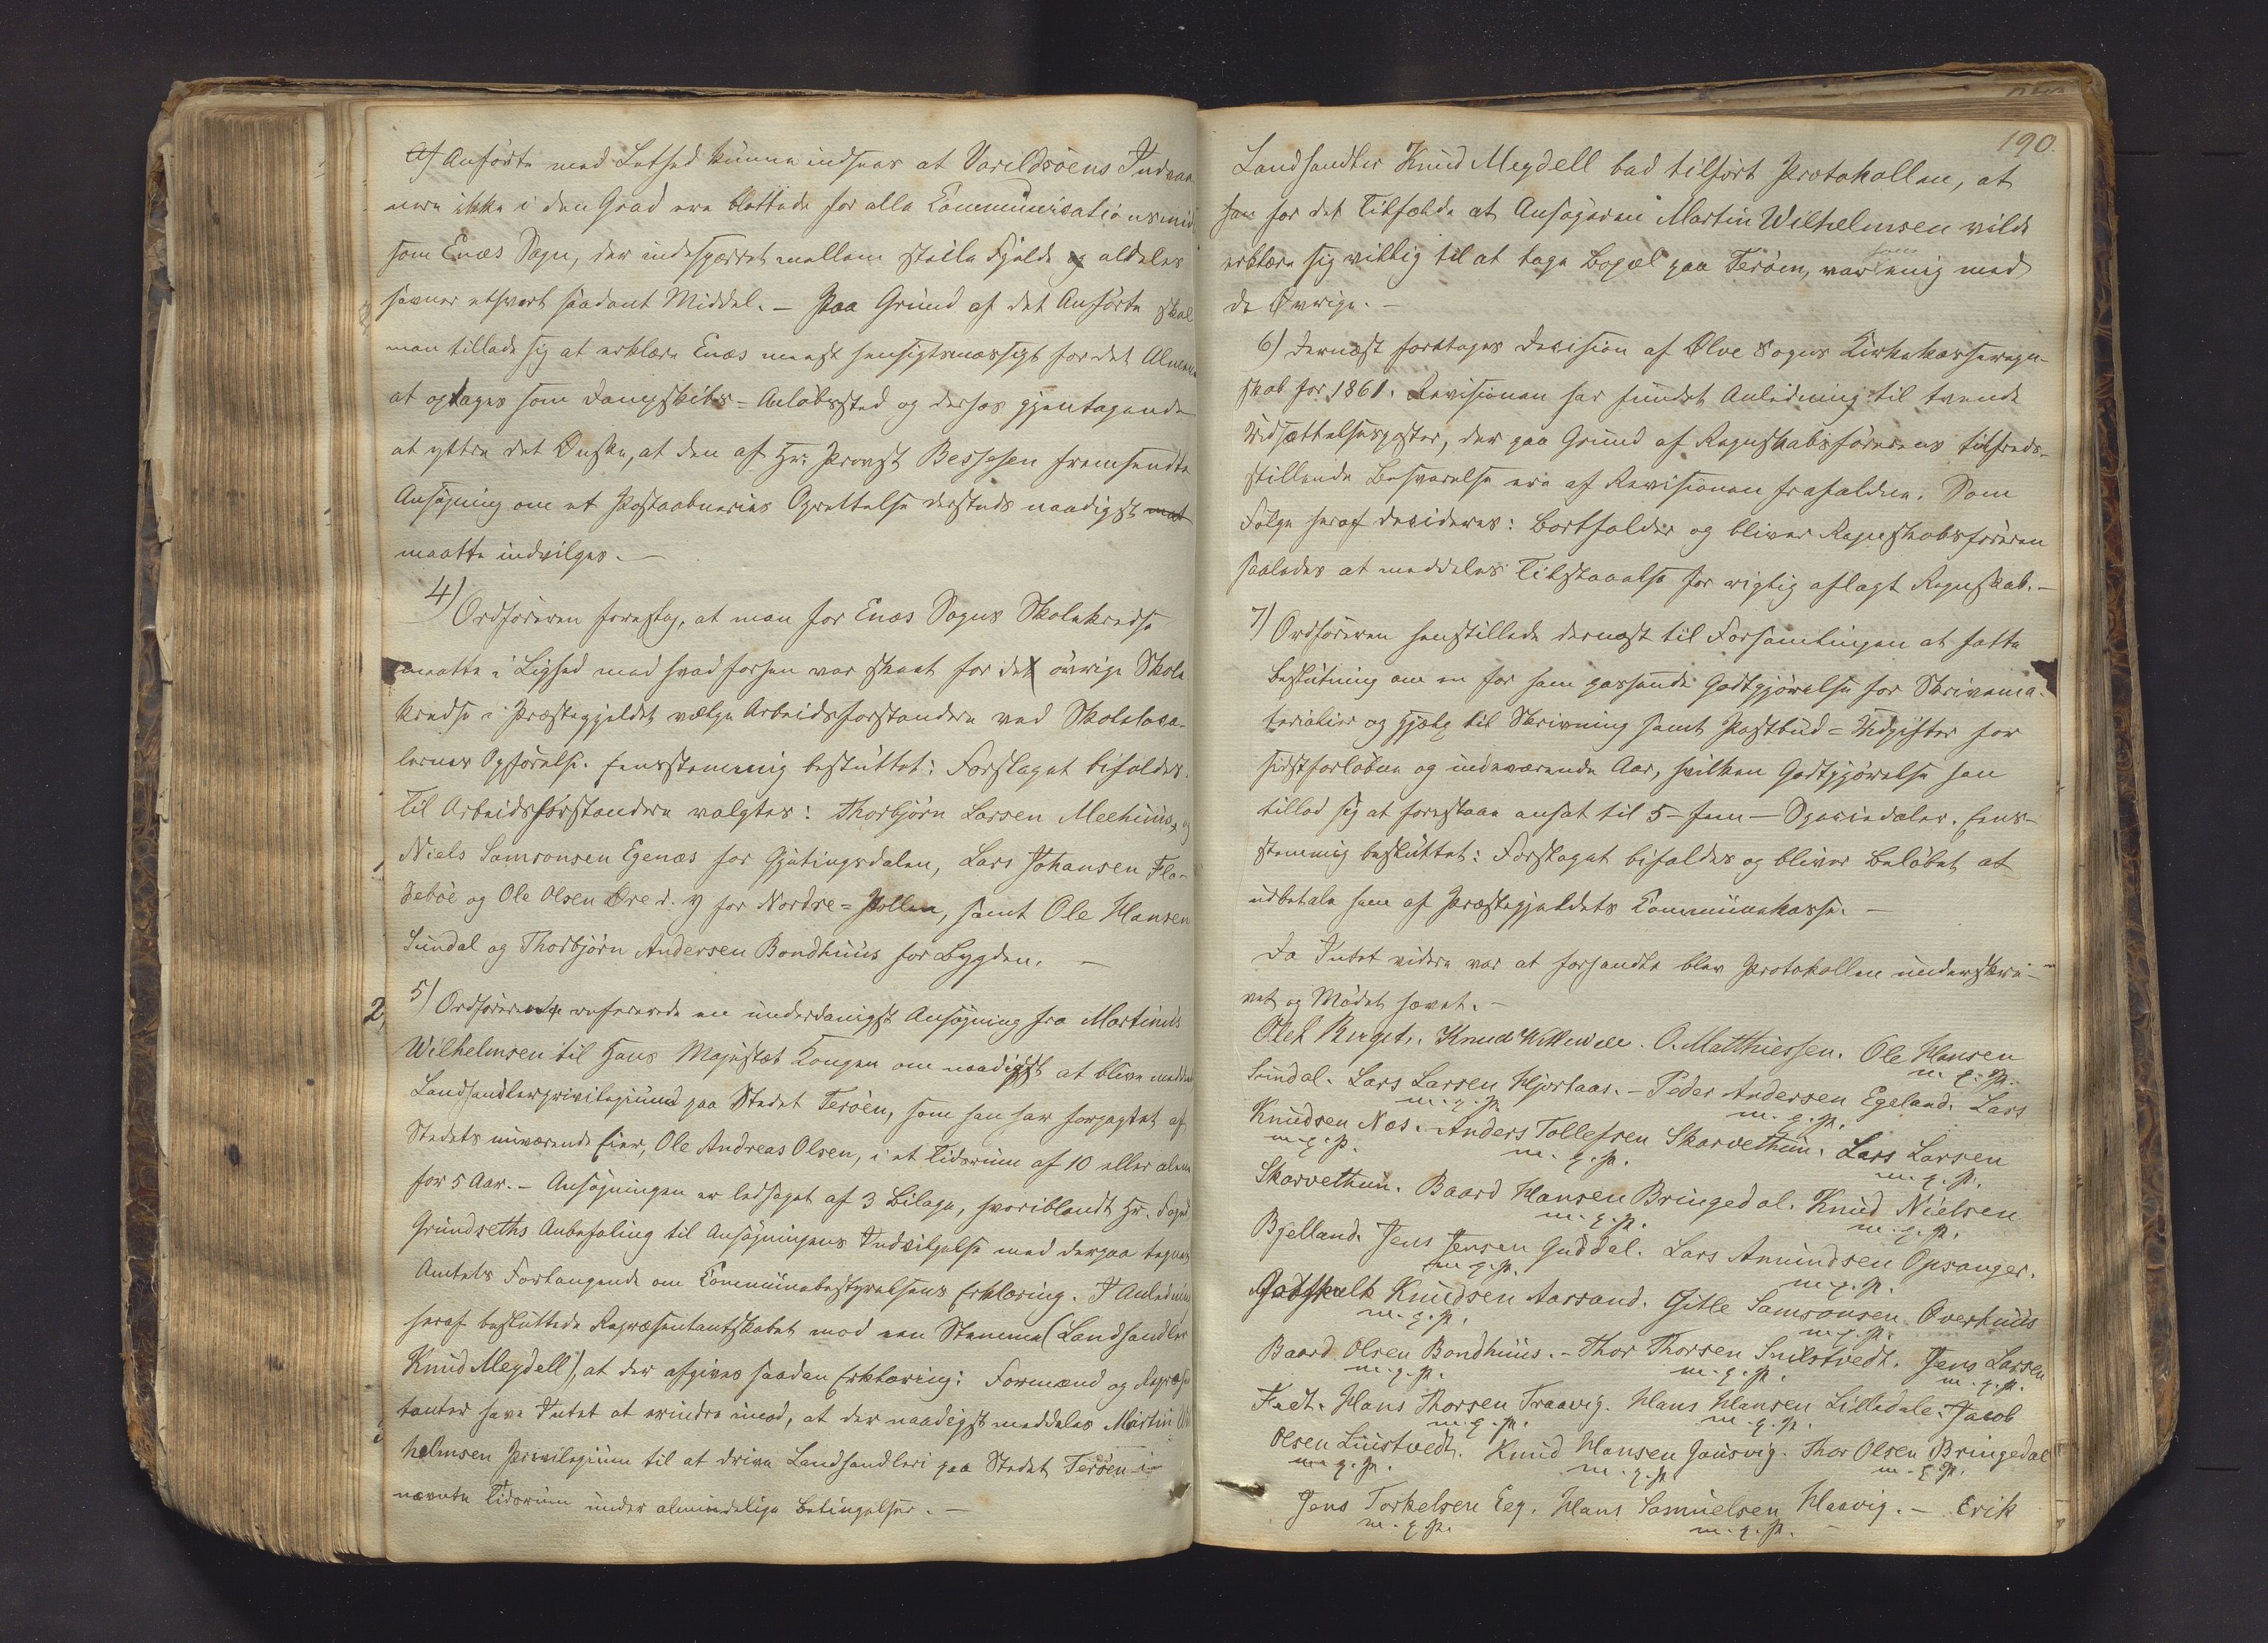 Anførte med Lethed kunne indsees at Varildsöens Indvaa-
nere ikke i den Grad ere blottede for alle Communicationsmid
som Enæs Sogn, der indespærret mellem steile Fjelde og aldeles
savner ethvert saadant Middel. – Paa Grund af det Anførte skal
man tillade sig at erklære Enæs meest hensigtsmæssigt for det Almene
at optages som Dampskibs-Anløbssted og derhos gjentagende
at yttre det Ønske, at den af Hr. Provst Bessesen fremsendte
Ansøgning om et Postaabneries Oprettelse dersteds naadigst
maatte indvilges. –
4) Ordføreren foreslog, at man for Enæs Sogns Skolekredse
maatte i Lighed med hvad forhen var skeet for de øvrige Skole
kredse i Præstegjeldet vælge Arbeidsforstandere ved Skoleloca-
lernes Opførelse. Eensstemmig besluttet: Forslaget bifaldes.
Til Arbeidsforstandere valgtes: Thorbjörn Larsen Meehuus, og
Niels Samsonsen Egenæs for Gjetingsdalen, Lars Johansen Fla-
tebøe og Ole Olsen Øre d. y for Nordre-Pollen, samt Ole Hansen
Sundal og Thorbjörn Andersen Bondhuus for Bygden. –
2,
5) Ordføreren refererede en underdanigst Ansøgning fra Martinus
Wilhelmsen til Hans Majestæt Kongen om naadigst at blive meddeelt
Landhandlerprivilegium paa Stedet Terøen, som han har forpagtet af
Stedets nuværende Eier, Ole Andreas Olsen, i et Tidsrum af 10 eller alene
for 5 Aar. – Ansøgningen er ledsaget af 3 Bilage, hvoriblandt Hr. Foged
Grundseths Anbefaling til Ansøgningens Indvilgelse med derpaa tegnet
Amtets Forlangende om Communebestyrelsens Erklæring. I Anledning
heraf besluttede Repræsentantskabet mod een Stemme (Landhandler
Knud Meydell), at der afgives saadan Erklæring: Formænd og Repræsen
tanter have Intet at erindre imod, at der naadigst meddeles Martin Wil
helmsen Privilegium til at drive Landhandleri paa Stedet Terøen i
nævnte Tidsrum under almindelige Betingelser. –
190.
Landhandler Knud Meydell bad tilført Protokollen, at
han for det Tilfælde at Ansøgeren Martin Wilhelmsen vilde
erklære sig villig til at tage Bopæl paa Terøen, var enig med
de Øvrige. –
6) Dernæst foretoges Decision af Ølve Sogns Kirkekasseregn-
skab for 1861. Revisionen har fundet Anledning til tvende
Udsættelsesposter, der paa Grund af Regnskabsførerens tilfreds-
stillende Besvarelse ere af Revisionen frafaldne. Som
Følge heraf decideres: Bortfalder og bliver Regnskabsføreren
saaledes at meddeles Tilstaaelse for rigtig aflagt Regnskab. –
7) Ordføreren henstillede dernæst til Forsamlingen at fatte
Beslutning om en for ham passende Godtgjørelse for Skrivema-
terialier og Hjelp til Skrivning samt Postbud-Udgifter for
sidstforløbne og indeværende Aar, hvilken Godtgjørelse han
tillod sig at foreslaae ansat til 5 – fem – Speciedaler. Eens-
stemmig besluttet: Forslaget bifaldes og bliver Beløbet at
udbetale ham af Præstegjeldets Communekasse. –
Da Intet videre var at forhandle blev Protokollen underskre-
vet og Mødet hævet. –
O. Matthiessen. Ole Hansen
m. q. p.
Sundal. Lars Larsen Hjortaas. – Peder Andersen Egeland. Lars
m. q. p. m. q. p.
Knudsen Næs. Anders Tollefsen Skarvethun. Lars Larsen
m. q. p. m. q. p. m. q. p.
Skarvethun. Baard Hansen Bringedal. Knud Nielsen
m. q. p. m. q. p.
Bjelland. Jens Jensen Guddal. Lars Amundsen Opsanger.
m. q. p. m. q. p.
Godskalk Knudsen Aarsand. Gitle Samsonsen Overhuus
m. q. p. m. q. p.
Baard Olsen Bondhuus. – Thor Thorsen Snilstvedt. Jens Larsen
m. q. p. m. q. p. m. q. p.
Fedt. Hans Thorsen Traavig. Hans Hansen Lilledale. Jacob
m. q. p. m. q. p.
Olsen Liustvedt. Knud Hansen Gausvig. Thor Olsen Bringedal
m. q. p. m. q. p. m. q. p.
Jens Torkelsen Eeg. Hans Samuelsen Haavig. – Erik
m. q. p. m. q. p.